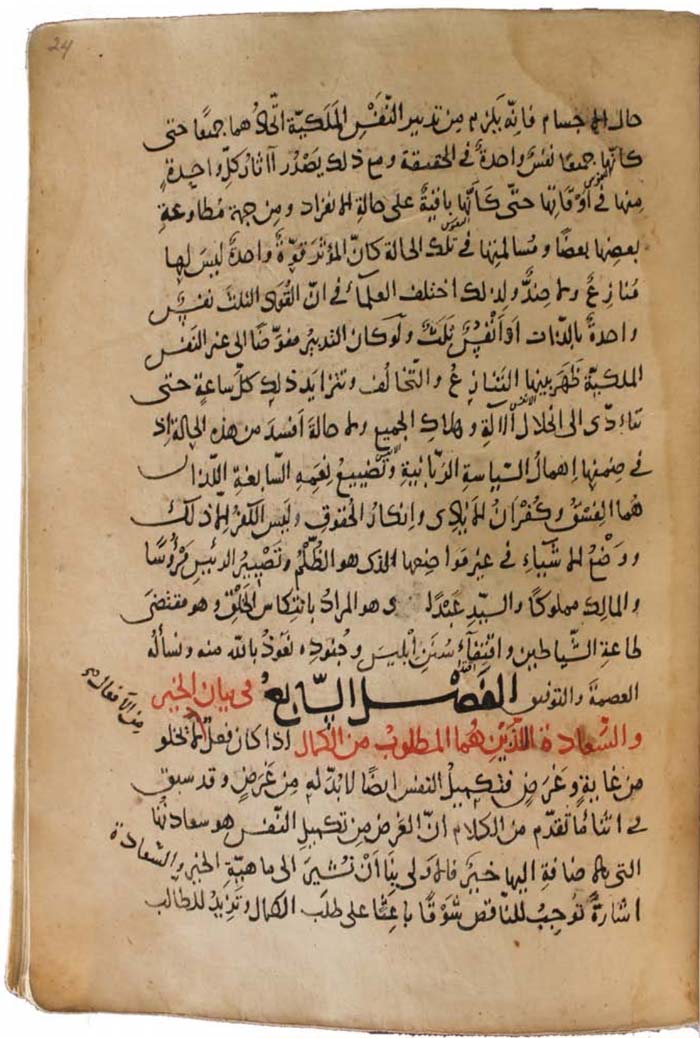 24
حال الاجسام فانه يلزم من تدبير النَّفْسِ المَلَكيّة اتّحادهما جمعًا حتى
كانّها جميعًا نفسٌ واحدةٌ في الحقيقة ومع ذلك يَصْدُر آاثار كلّ واحدةٍ
منها في اوقاتها حتّى كَأنّها باقيةٌ على حالة الانفراد ومن جهة مُطاوعةِ
بعضِها بعضًا ومُسالمتِها في تلك الحالة كان المؤثر قوّةٌ واحدةٌ ليسَ لها
مُنازعٌ ولا ضِدٌّ ولذلك اختلف العلمآءُ في انّ القُوى الثلث نفسٌ
واحدةٌ بالذّات او انفُسٌ ثلثٌ ولو كان التدبير مفوّضًا الى غير النَفس
الملكيّة ظَهَر بينها التنازعُ والتّخالُف وتتزايد ذلك كلّ ساعةٍ حتى
تتأدّى الى انحلال الآلةِ وهلاك الجميع ولا حالةَ أفسدَ من هذه الحالة اذ
في ضمنها اِهمالُ السّياسةِ الرّبّانيةِ وتَضْييعُ نِعَمِهِ السّابغةِ اللّذان
هُما الفِسْقُ وكُفْرانُ الايادى وانكارُ الحُقوق وليس الكفرُ الا ذلك
ووَضْعُ الاشيآءِ في غير مَواضِعها الذى هو الظُلْمُ وتَصْييرُ الرئيسِ مَرْؤسًا
والمالك مملوكًا والسيّدِ عبدًا وهو المرادُ بانتكاس الخَلْق وهو مقتضى
طاعة الشّياطين واقتفآءِ سُنَنِ ابليس وجُنوده نَعُوذ بالله منه ونسألُه
العصمةَ والتوفيق الفَصْل السّابع في بيان الخير
من الافعال
والسّعادة اللّذَيْنِ هما المطلوب من الكمال اذا كان فعلٌ لا يخلو
من غايةٍ وغَرَضٍ فتكميلُ النفس ايضًا لابدّ له من غَرَضٍ وقد سبق
في اثنآء ما تقدّم من الكلام انّ الغَرَض من تكميل النّفس هو سعادتُها
التى بالاضافة اليها خيرٌ فالاولى بنا أنْ نُشيرَ الى ماهيّةِ الخير والسّعادة
اشارةً تُوجِبُ للناقص شَوْقًا باعثًا على طلب الكمال وتَزيد للطالب